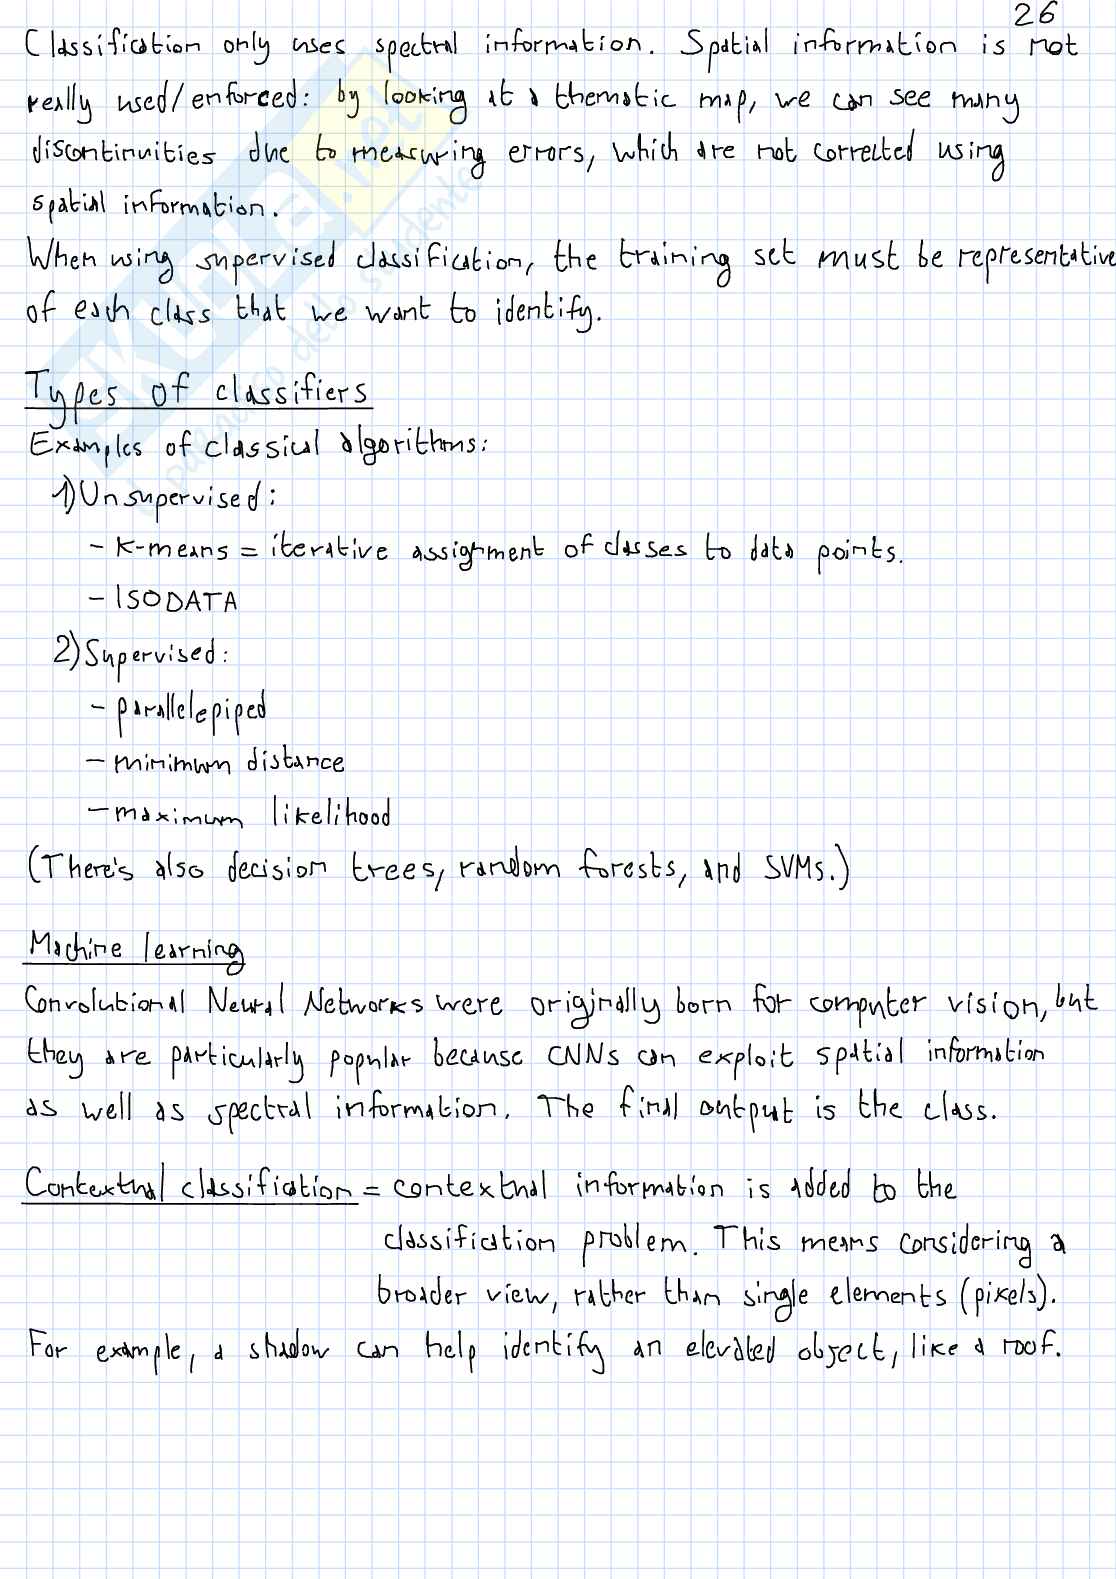 26
Classification only uses spectral information. Spatial information is not
really used/enforced: by looking at a thematic map, we can see many
discontinuities due to measuring errors, which are not corrected using
spatial information.
When using supervised classification, the training set must be representative
of each class that we want to identify.
Types of classifiers
Examples of classical algorithms:
1) Unsupervised:
- K-means = iterative assignment of classes to data points.
- ISODATA
2) Supervised:
- parallelepiped
- minimum distance
- maximum likelihood
(There's also decision trees, random forests, and SVMs.)
Machine learning
Convolutional Neural Networks were originally born for computer vision, but
they are particularly popular because CNNs can exploit spatial information
as well as spectral information. The final output is the class.
Contextual classification = contextual information is added to the
classification problem. This means considering a
broader view, rather than single elements (pixels).
For example, a shadow can help identify an elevated object, like a roof.